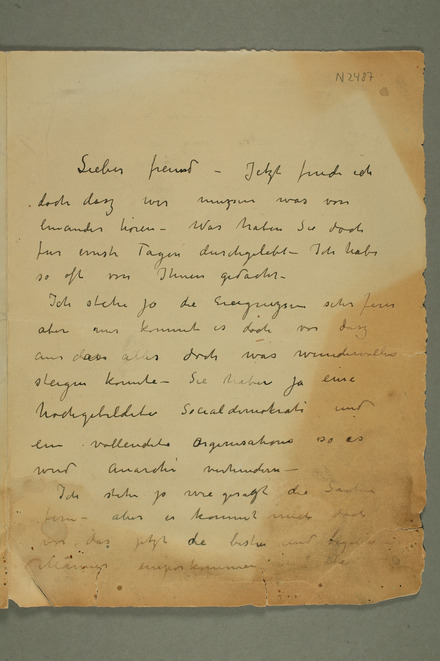 N2487
Lieber freund – Jetzt finde ich
doch dasz wir mussen was von
einander hören – Was haben Sie doch
fur ernste Tagen durchgelebt – Ich habe
so oft von Ihnen gedacht –
Ich stehe ja die Ereignissen sehr fern
aber mir kommt es doch vor dasz
aus dass alles doch was wundervolles
steigen konnte – Sie haben ja eine
hochgebildete Socialdemokrati und
ein vollendete Organisations so es
wird Anarchi verhindern –
Ich stehe ja wie gesagt die Sachen
fern – aber es kommt mich doch
vor das jetzt die besten und
Männer emporkommen